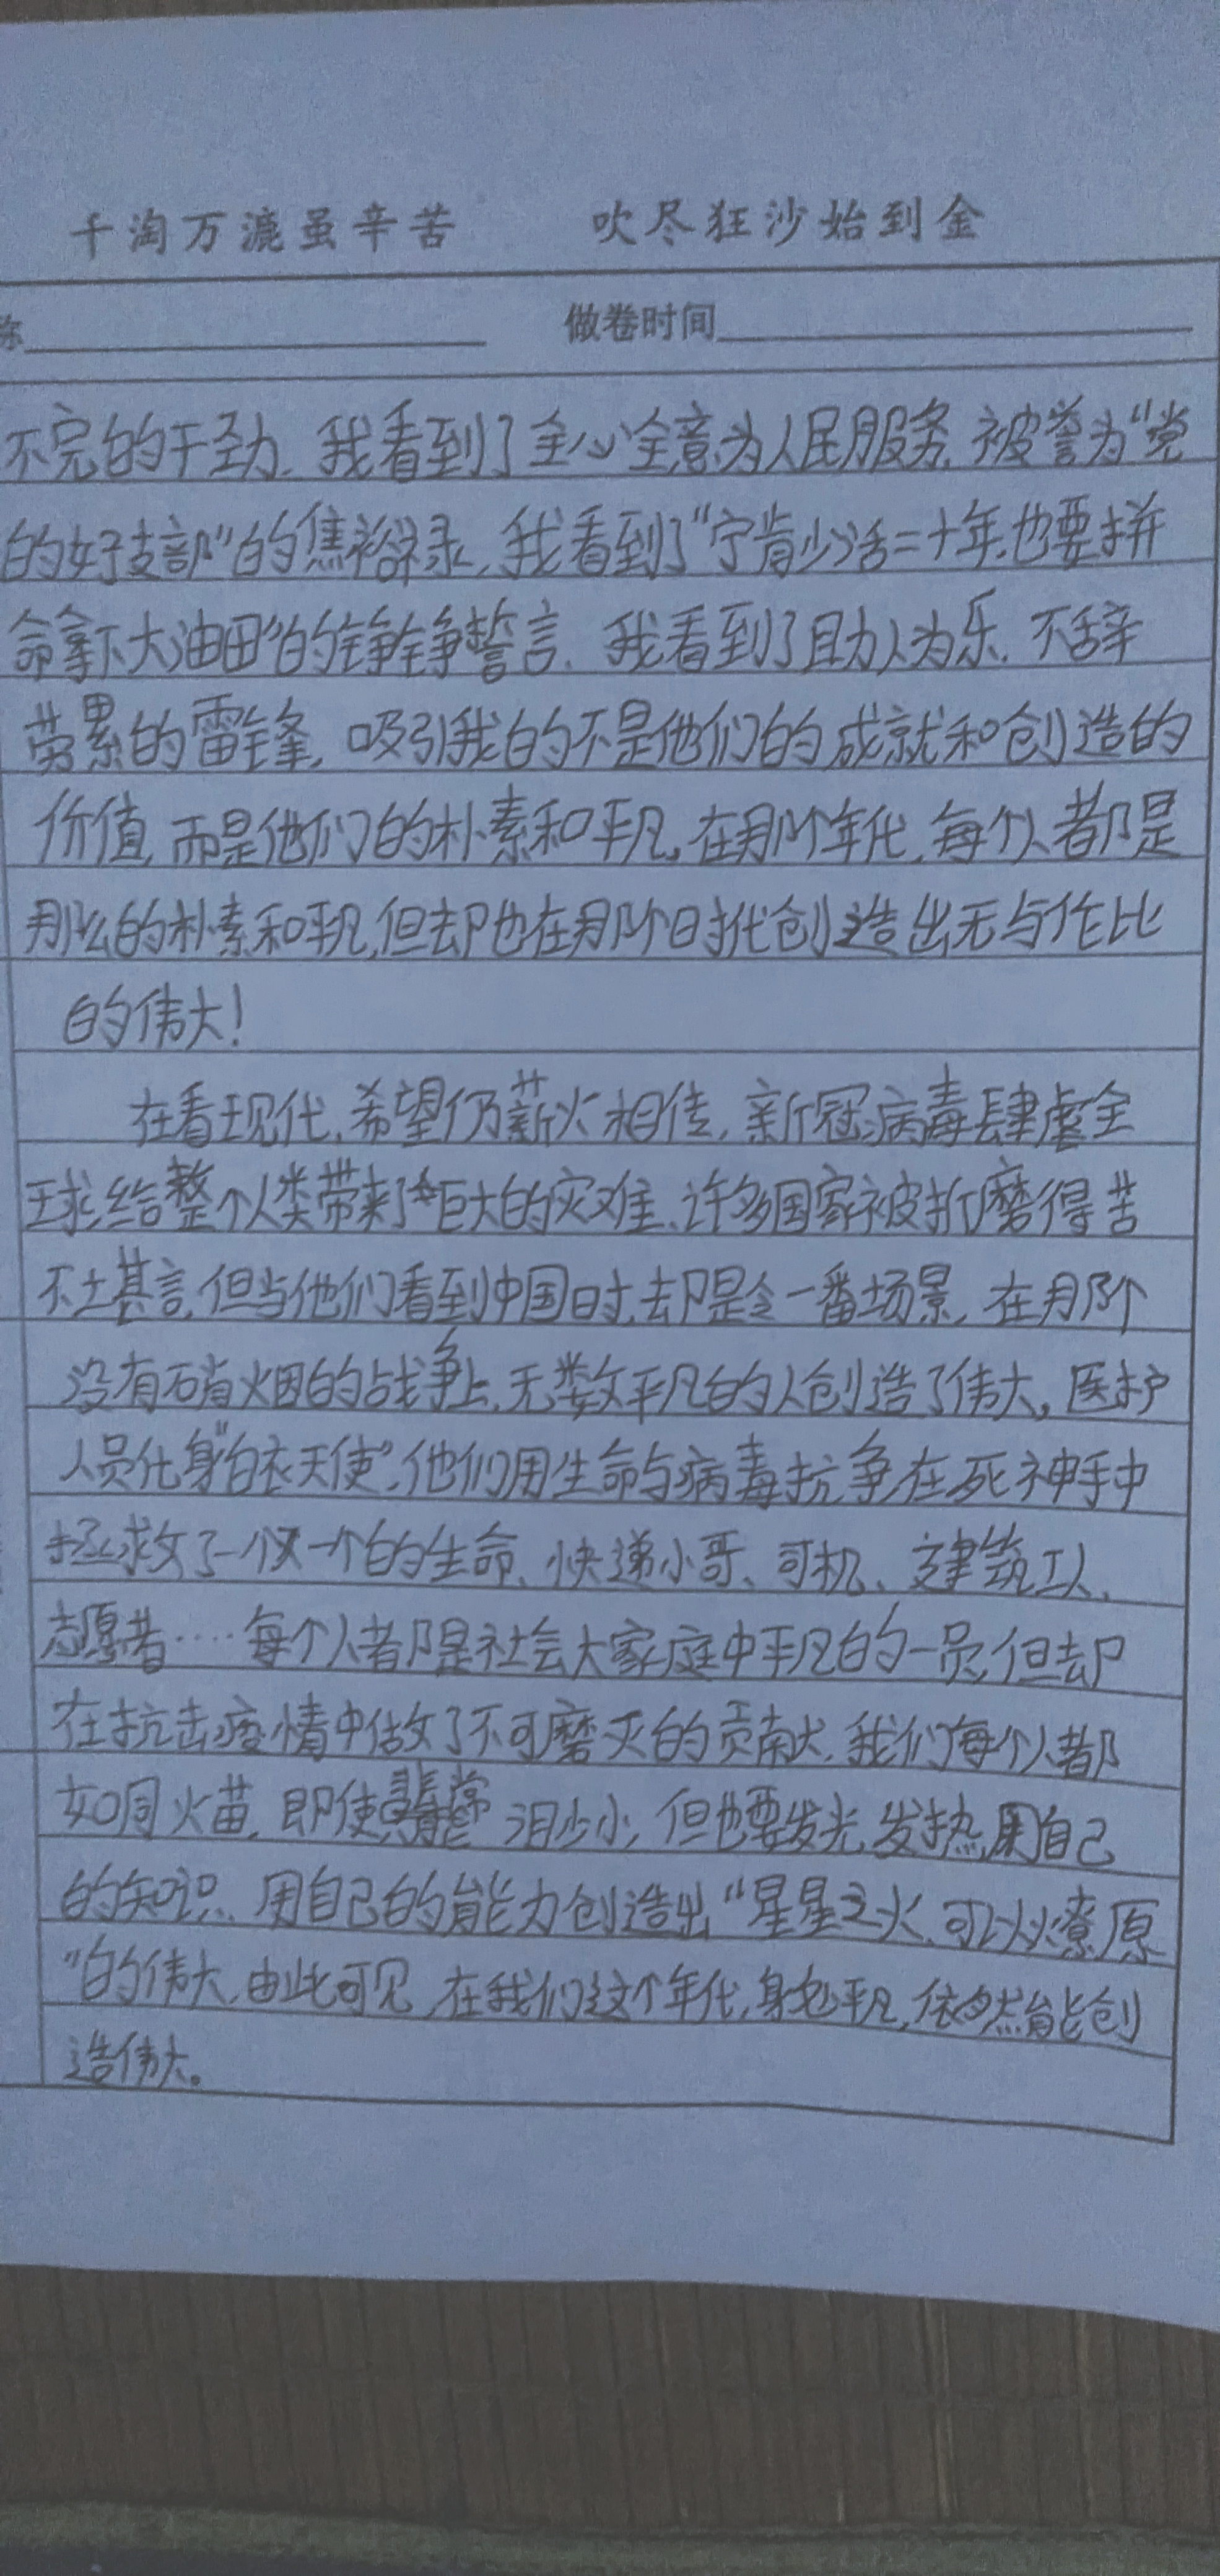 千淘万漉虽辛苦 吹尽狂沙始到金
称 做卷时间
不完的干劲,我看到了全心全意为人民服务,被誉为“党
的好支部”的焦裕禄,我看到了“宁肯少活二十年,也要拼
命拿下大油田”的铮铮誓言,我看到了助人为乐,不辞
劳累的雷锋,吸引我的不是他们的成就和创造的
价值,而是他们的朴素和平凡,在那个年代,每个人都是
那么的朴素和平凡,但却也在那个时代创造出无与伦比
的伟大!
在看现代,希望仍薪火相传,新冠病毒肆虐全
球,给整个人类带来了巨大的灾难,许多国家被折磨得苦
不堪言,但当他们看到中国时,却是令一番场景,在那个
没有硝烟的战争上,无数平凡的人创造了伟大,医护
人员化身“白衣天使”,他们用生命与病毒抗争,在死神手中
拯救了一个又一个的生命,快递小哥、司机、建筑工人、
志愿者……每个人都是社会大家庭中平凡的一员,但却
在抗击疫情中做了不可磨灭的贡献,我们每个人都
如同火苗,即使 渺小,但也要发光,发热,用自己
的知识,用自己的能力创造出“星星之火,可以燎原
”的伟大,由此可见,在我们这个年代,身处平凡,依然能创
造伟大。